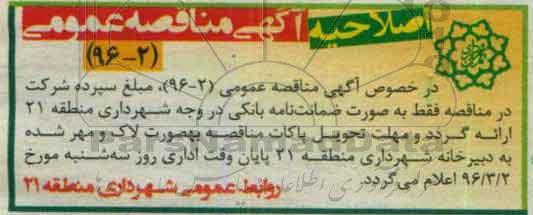 اصلاحیه آگهی مناقصه عمومی
(۹۶-۲)
در خصوص آگهی مناقصه عمومی (۲-۹۶)، مبلغ سپرده شرکت
در مناقصه فقط به صورت ضمانت‌نامه بانکی در وجه شهرداری منطقه ۲۱
ارائه گردد و مهلت تحویل پاکات مناقصه بهصورت لاک و مهر شده
به دبیرخانه شهرداری منطقه ۲۱ پایان وقت اداری روز سه‌شنبه مورخ
۹۶/۳/۲ اعلام می‌گردد.
روابط عمومی شهرداری منطقه ۲۱
ParsNamadData